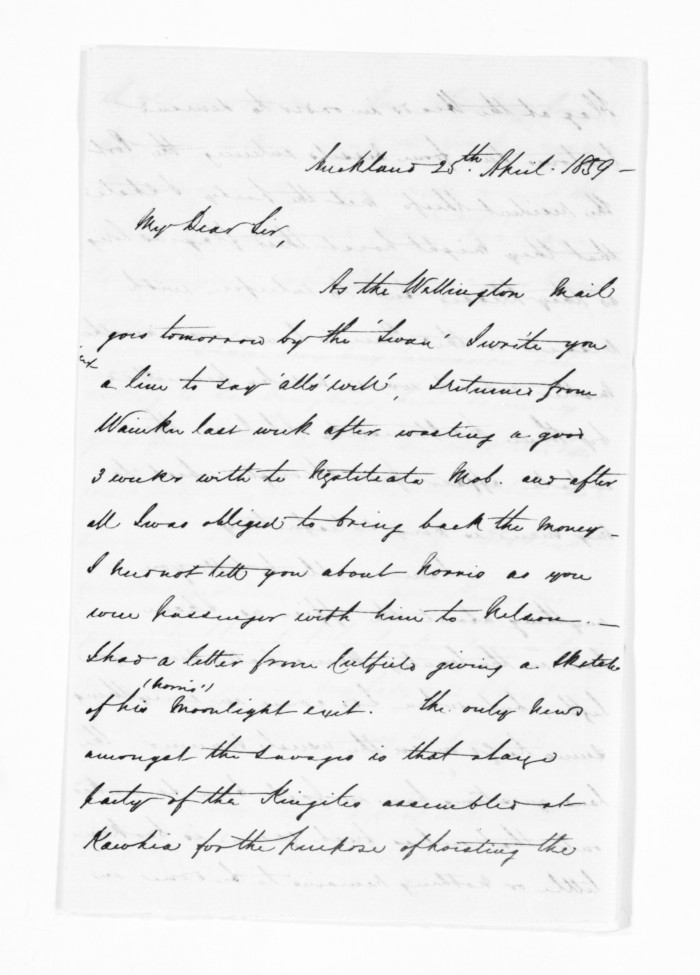 Auckland 25th. April. 1859 -
My Dear Sir,
As the Wellington Mail
goes tomorrow by the 'Swan' I write you
just
a line to say 'alls' well', I returned from
Waiuku last week after wasting a good
3 weeks with te Ngatiteata Mob. and after
all I was obliged to bring back the money -
I need not tell you about Norris as you
were Passenger with him to Nelson. -
I had a letter from Cutfield giving a sketch
(Norris')
of his Moonlight exit. The only News
amongst the savages is that a large
party of the Kingites assembled at
Kawhia for the purpose of hoisting the